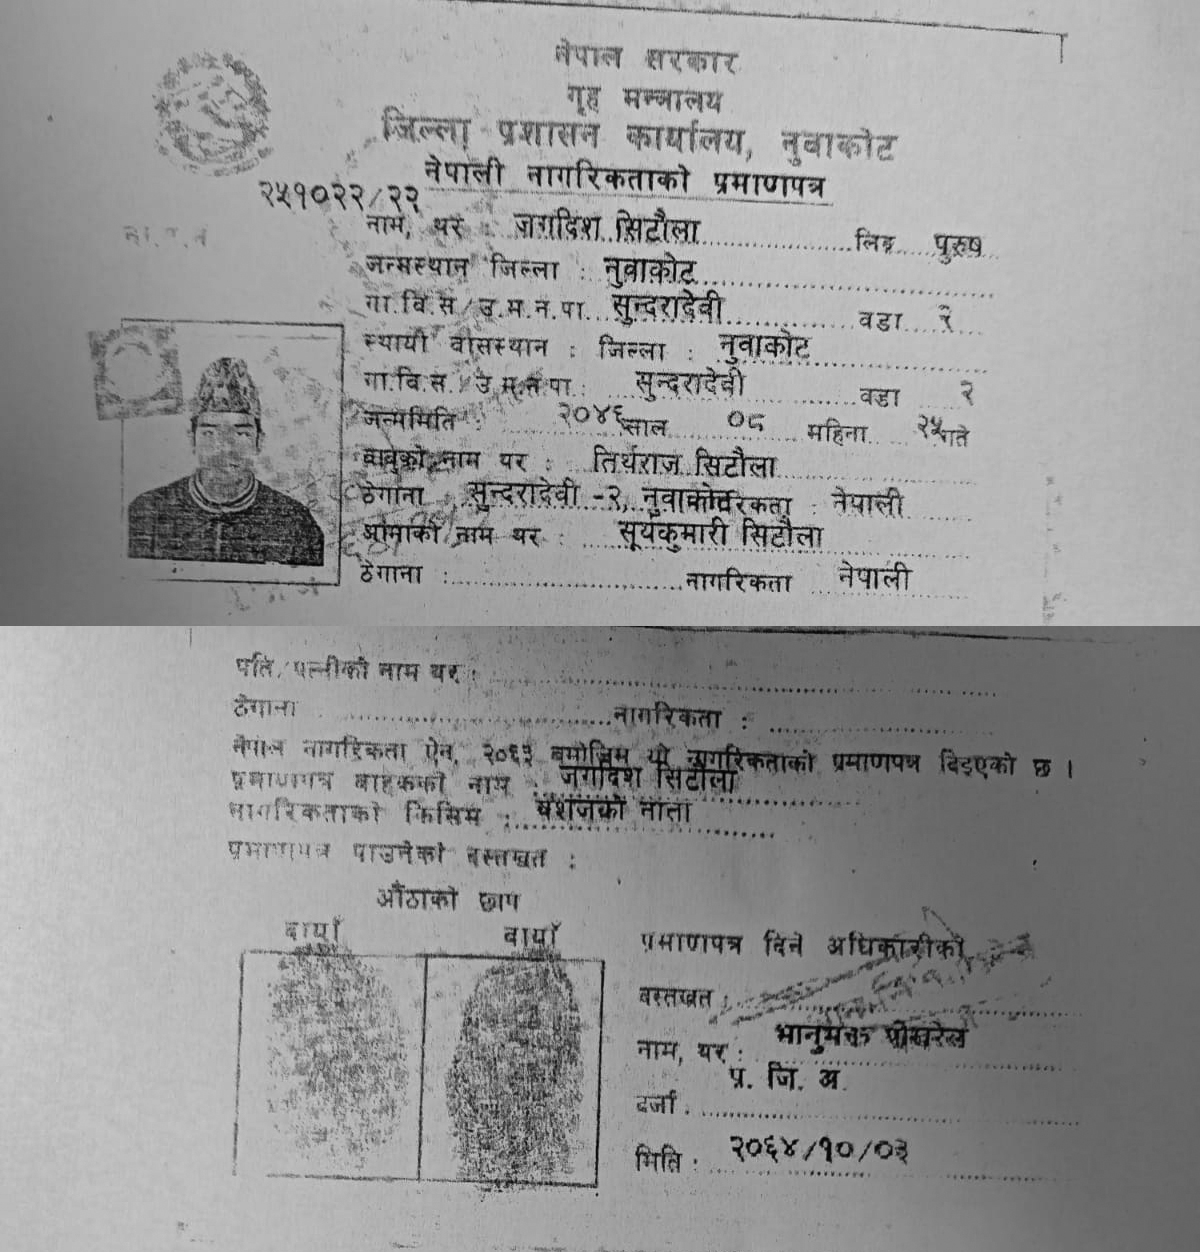 नेपाल सरकार
गृह मन्त्रालय
जिल्ला प्रशासन कार्यालय, नुवाकोट
नेपाली नागरिकताको प्रमाणपत्र
२५१०२२/२२
नाम, थर : जगदिश सिटौला लिङ्ग पुरुष
जन्मस्थान जिल्ला : नुवाकोट
गा.वि.स./उ.म.न.पा. सुन्दरादेवी वडा २
स्थायी वासस्थान : जिल्ला : नुवाकोट
गा.वि.स./उ.म.न.पा. सुन्दरादेवी वडा २
जन्ममिति : २०४६ साल ०८ महिना २५ गते
बाबुको नाम थर : तिर्थराज सिटौला
ठेगाना : सुन्दरादेवी -२, नुवाकोट नागरिकता : नेपाली
आमाको नाम थर : सूर्यकुमारी सिटौला
ठेगाना : नागरिकता नेपाली
पति/पत्नीको नाम थर :
ठेगाना नागरिकता :
नेपाल नागरिकता ऐन, २०६३ बमोजिम यो नागरिकताको प्रमाणपत्र दिइएको छ ।
प्रमाणपत्र बाहकको नाम : जगदिश सिटौला
नागरिकताको किसिम : वंशजको नाता
प्रमाणपत्र पाउनेको दस्तखत :
औंठाको छाप
दायाँ बायाँ
प्रमाणपत्र दिने अधिकारीको
दस्तखत :
नाम, थर : भानुभक्त पोखरेल
प्र. जि. अ.
दर्जा :
मिति : २०६४/१०/०३